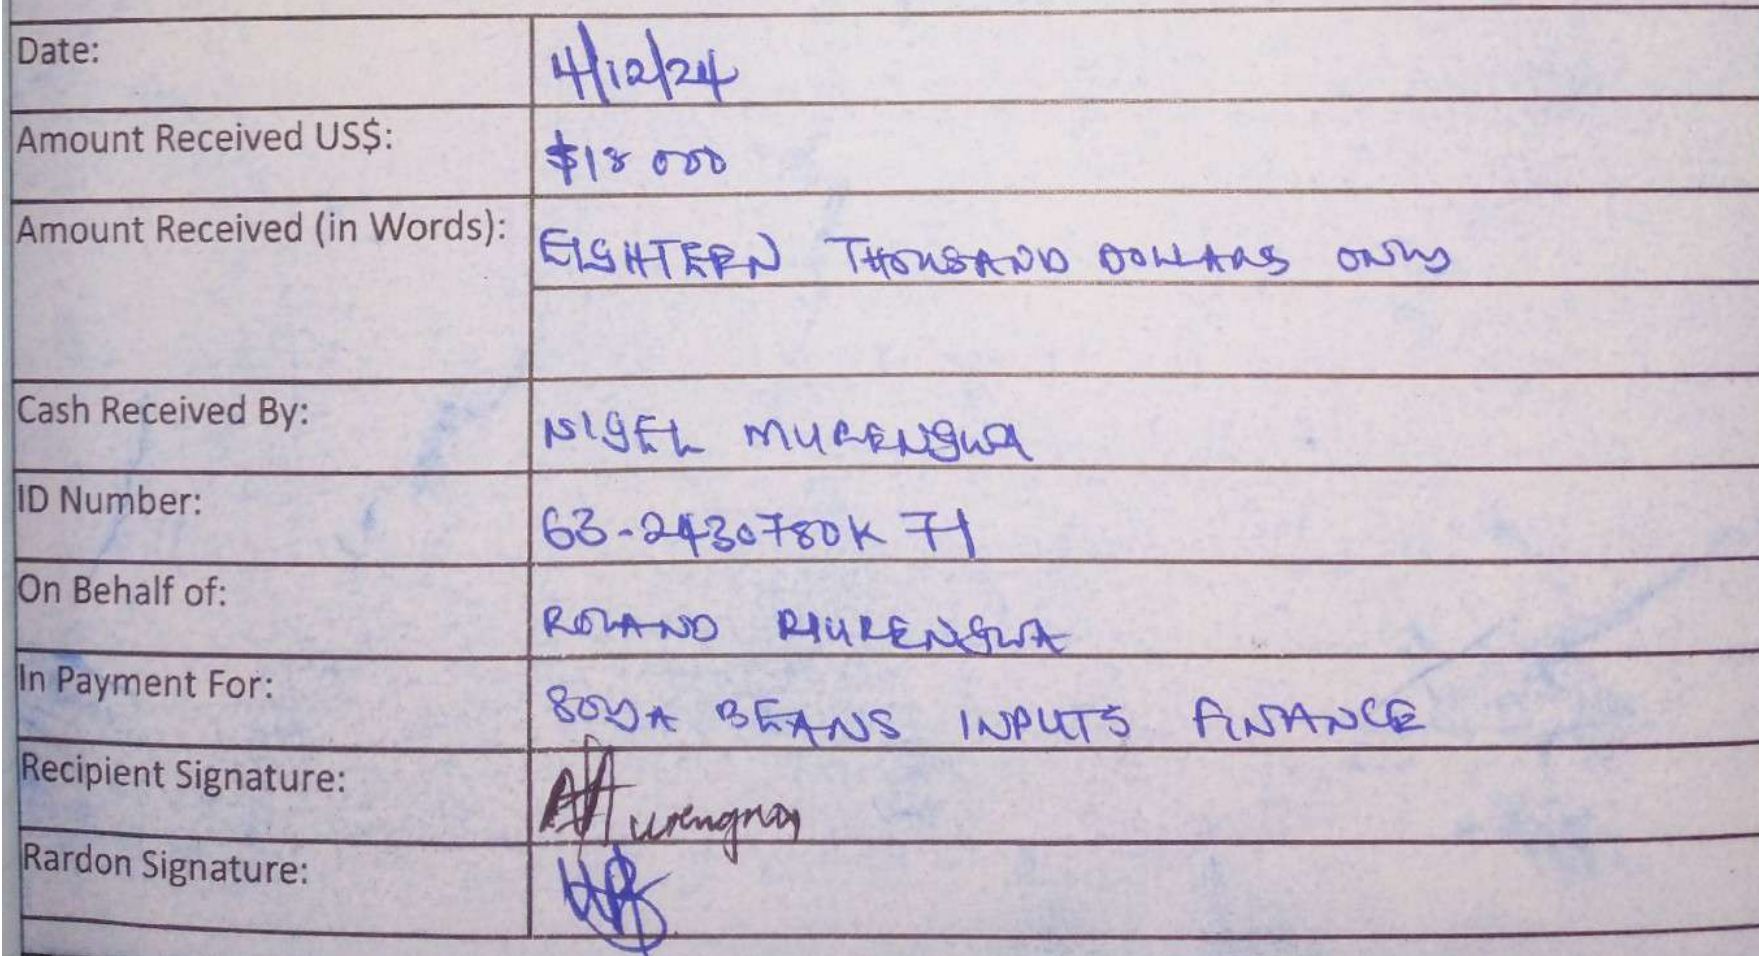 Date: 4/12/24
Amount Received US$: $18 000
Amount Received (in Words): EIGHTEEN THOUSAND DOLLARS ONLY
Cash Received By: NIGEL MURENGWA
ID Number: 63-2430780K 71
On Behalf of: ROLAND MURENGWA
In Payment For: SOYA BEANS INPUTS FINANCE
Recipient Signature:
Rardon Signature: